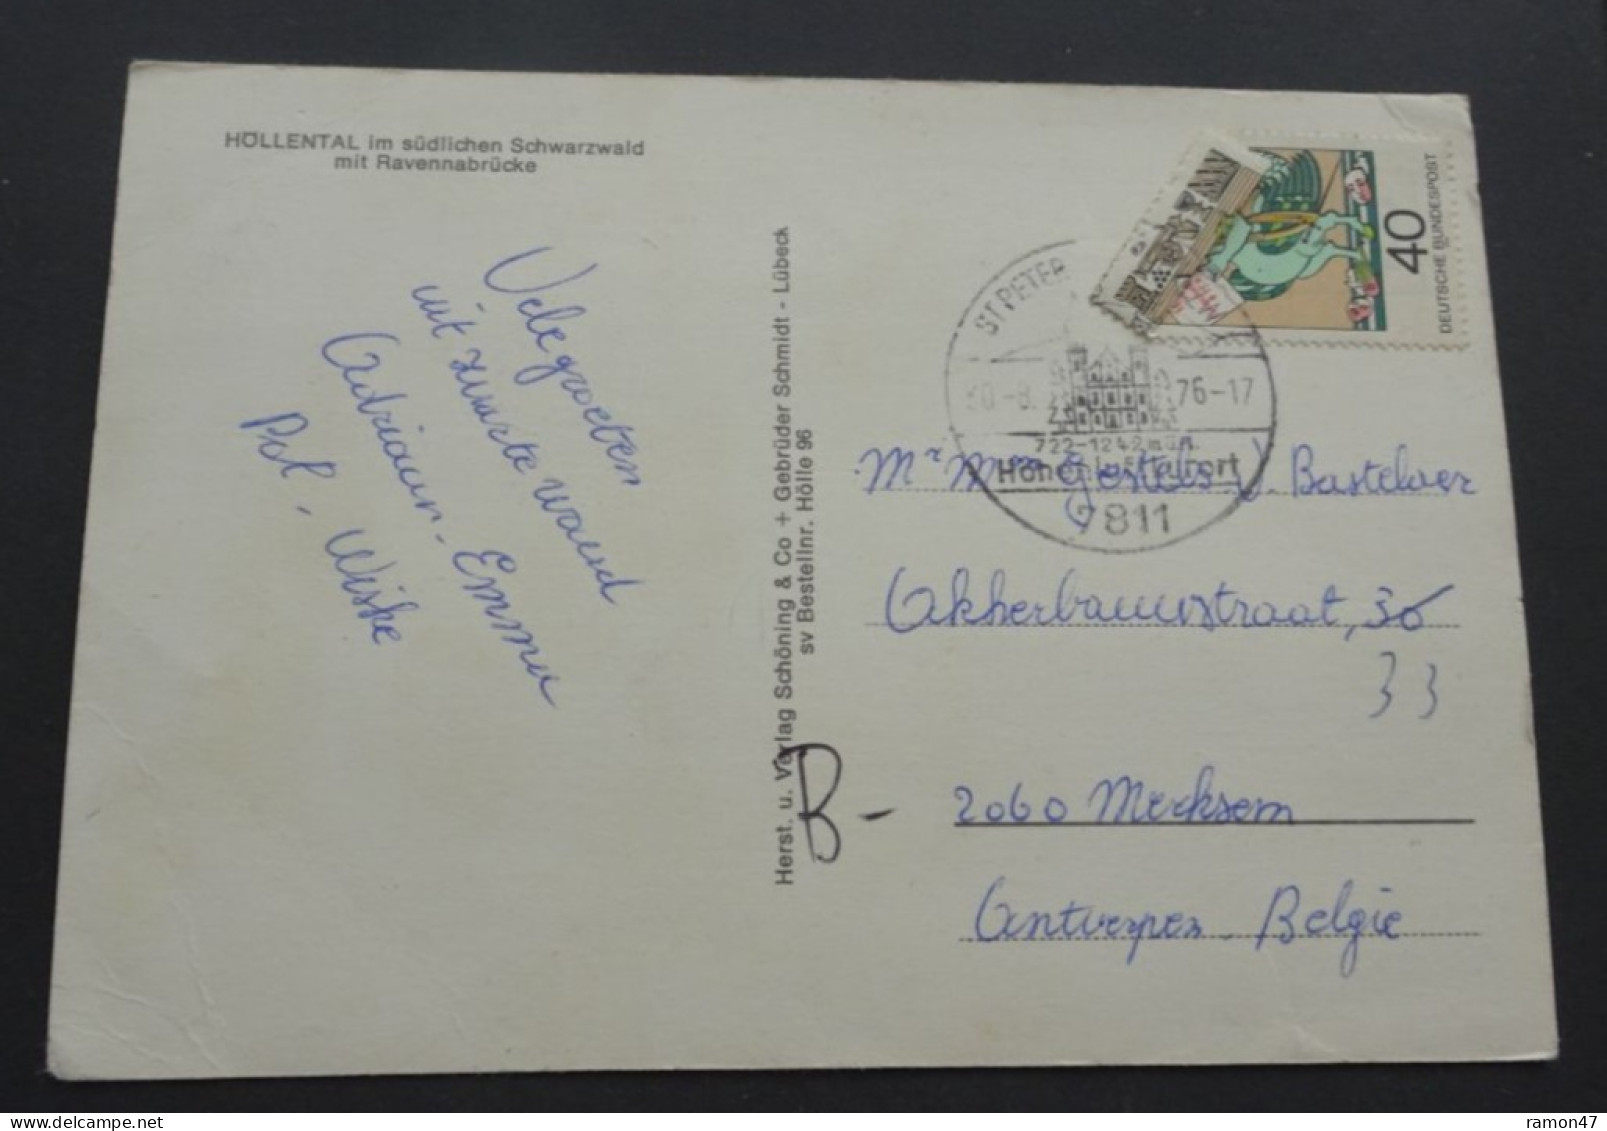 HÖLLENTAL im südlichen Schwarzwald
mit Ravennabrücke
Vele groeten
uit zwarte woud
Adriaan - Emma
Pol - Wiske
Herst. u. Verlag Schöning & Co + Gebrüder Schmidt - Lübeck
sv Bestellnr. Hölle 96
B-
40
DEUTSCHE BUNDESPOST
ST PETER
30.-8. 76-17
722-1242 m ü.M.
Höhenluftkurort
7811
Mr Mme J. Bastelaer
Akkerbauwstraat, 36
33
2060 Merksem
Antwerpen. Belgie
ramon47